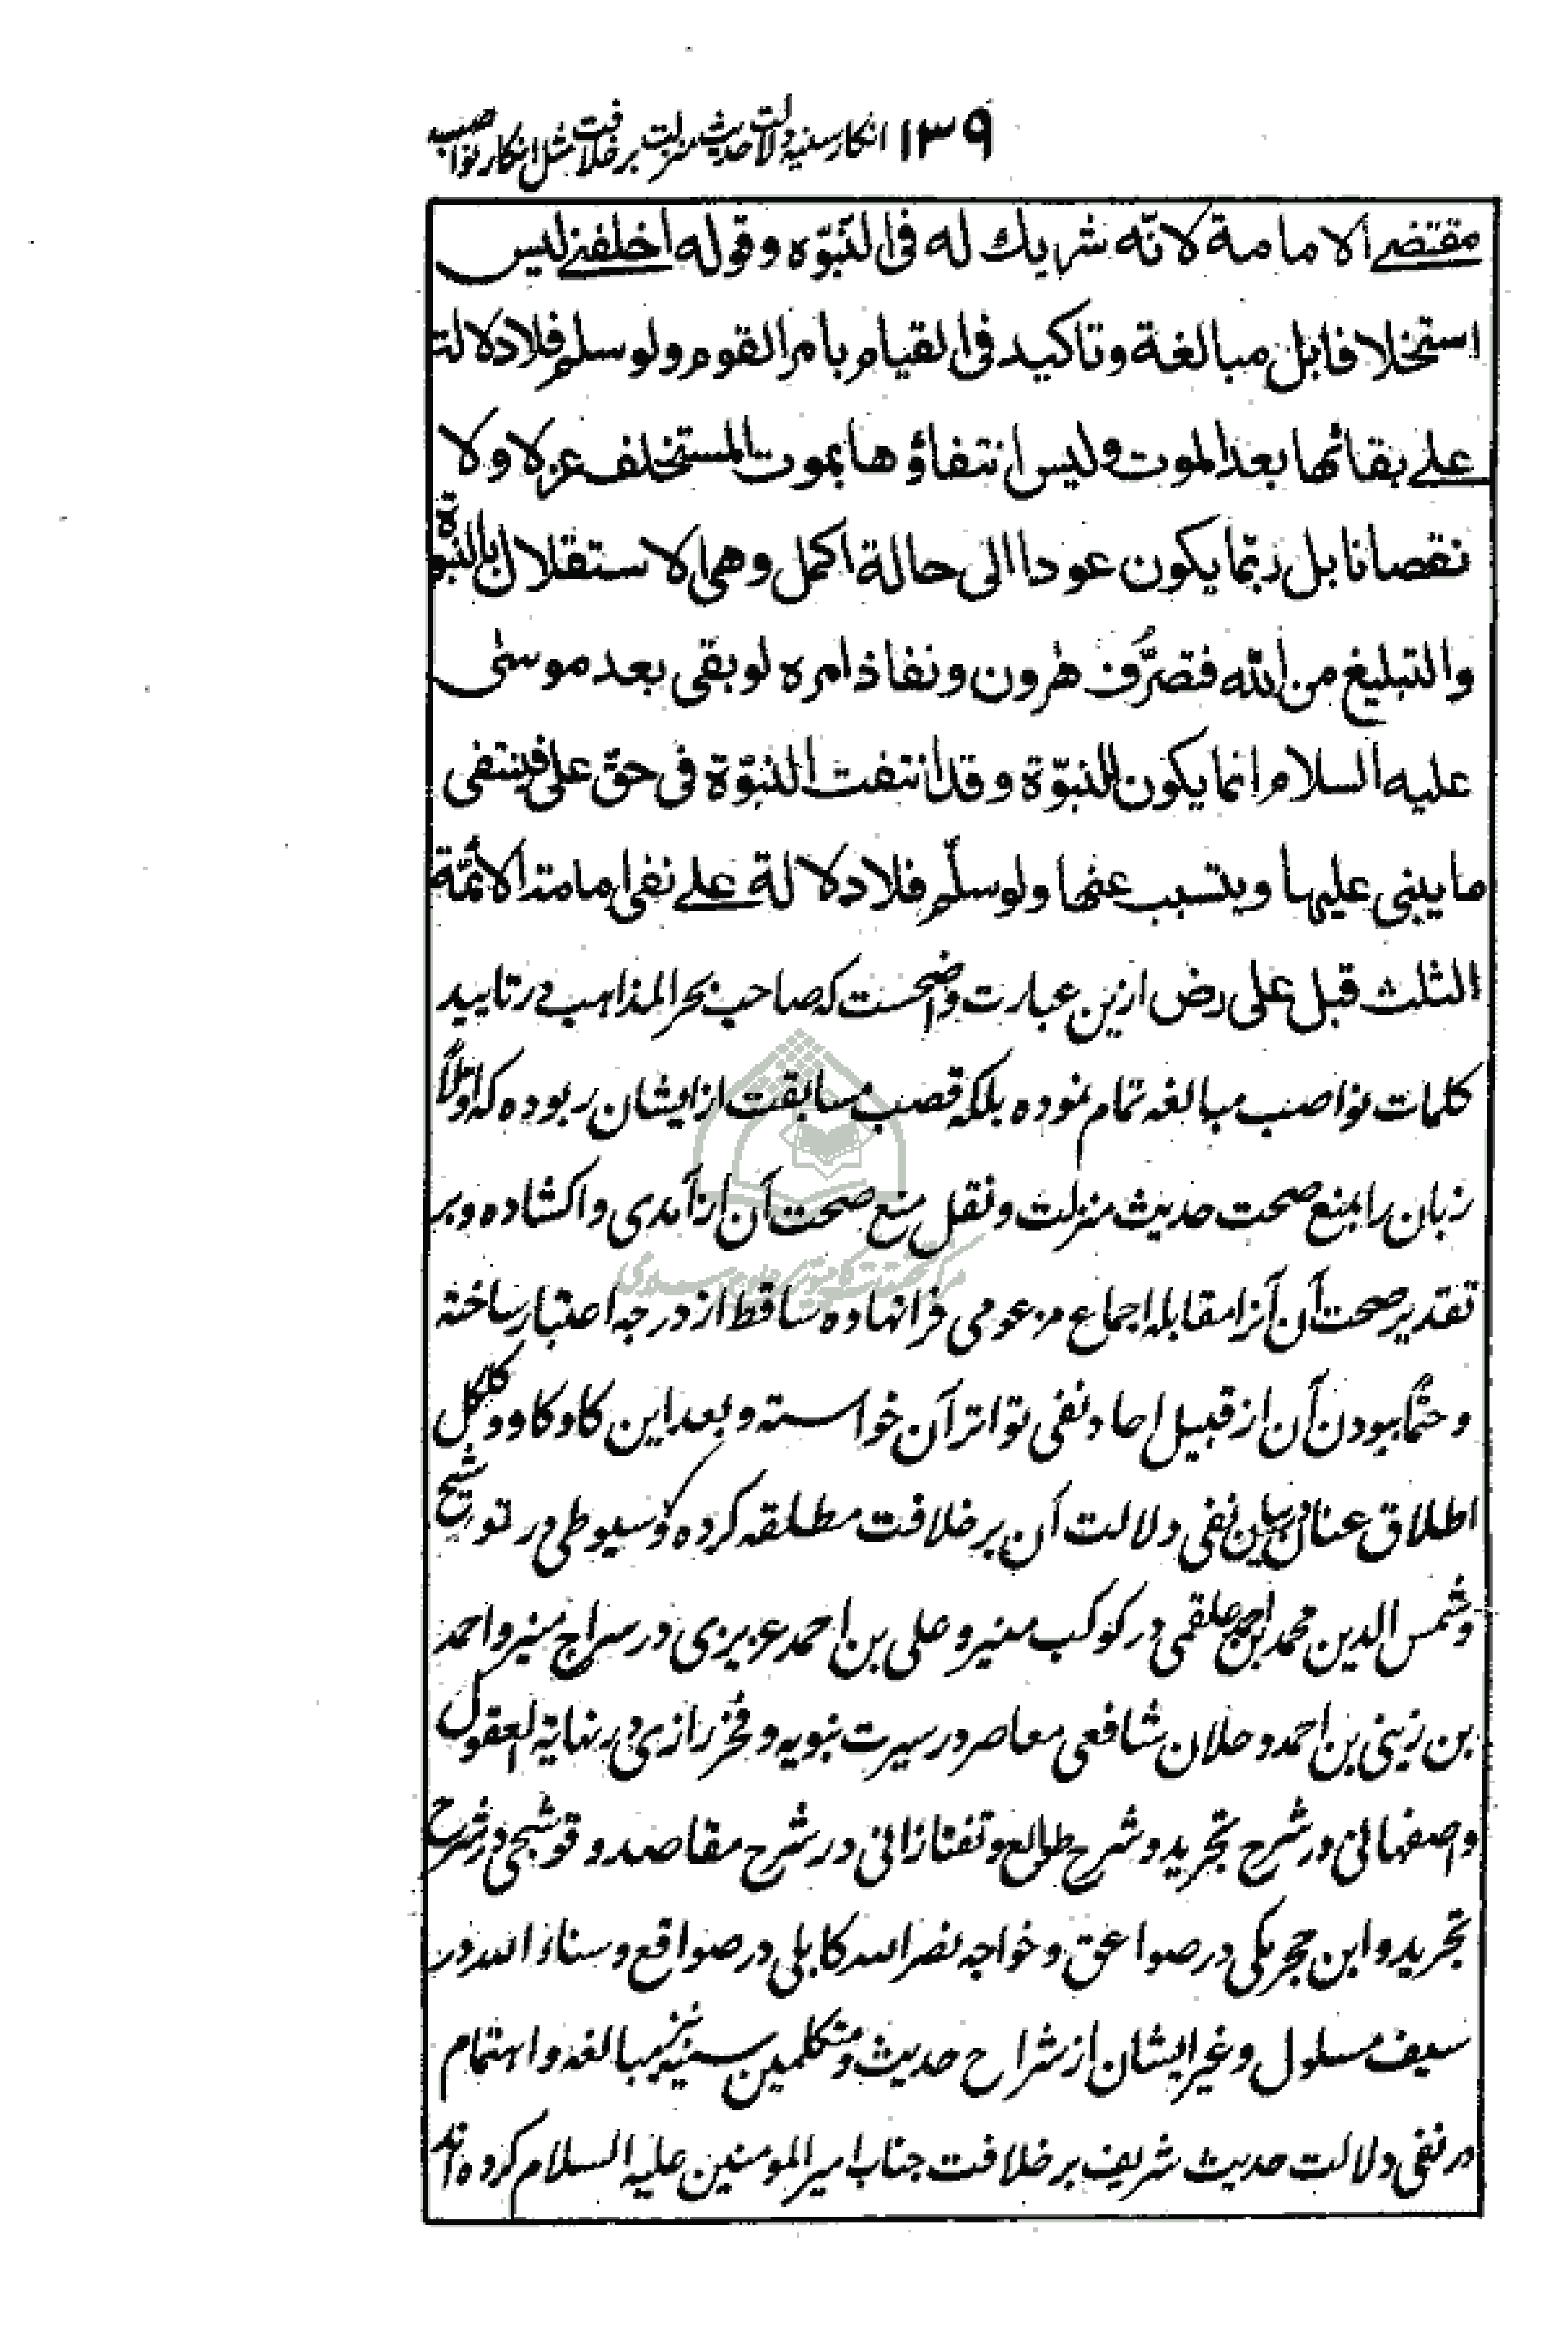 ۱۳۹ انکار سنیه دلالت حدیث منزلت بر خلافت مثل انکار نواصب
مقتضے الامامة لانّه شريك له فى النّبوّه وقوله اخلفنے ليس
استخلافا بل مبالغة وتاكيد فى القيام بامر القوم ولو سلم فلا دلالة
علے بقائها بعد الموت وليس انتفاؤها بموت المستخلف عزلا ولا
نقصانا بل ربّما يكون عودا الى حالة اكمل وهى الاستقلال بالنبوّة
والتبليغ من الله فتصرُّف هٰرون ونفاذ امره لو بقى بعد موسىٰ
عليه السلام انما يكون للنبوّة وقد انتفت النبوّة فى حقّ على فينتفى
ما يبنى عليها ويتسبب عنها ولو سلّم فلا دلالة علے نفى امامة الائمّة
الثلث قبل على رض ازین عبارت واضحست که صاحب بحر المذاهب در تایید
کلمات نواصب مبالغه تمام نموده بلکه قصب مسابقت از ایشان ربوده که اولاً
زبان را بمنع صحت حدیث منزلت و نقل منع صحت آن از آمدی واکشاده و بر
تقدیر صحت آن آنرا مقابله اجماع مزعومی فرانهاده ساقط از درجه اعتبار ساخته
و حتماً ببودن آن از قبیل احاد نفی تواتر آن خواسته و بعد این کاوکاو و کلکل
اطلاق عنان در بیان نفی دلالت آن بر خلافت مطلقه کرده و سیوطی در توشیح
و شمس الدین محمد بن احمد علقمی در کوکب منیر و علی بن احمد عزیزی در سراج منیر و احمد
بن زینی بن احمد دحلان شافعی معاصر در سیرت نبویه و فخر رازی در نهایة العقول
و اصفهانی در شرح تجرید و شرح طوالع و تفتازانی در شرح مقاصد و قوشجی در شرح
تجرید و ابن حجر مکی در صواعق و خواجه نصر الله کابلی در صواقع و سناء الله در
سیف مسلول و غیر ایشان از شراح حدیث و متکلمین سنیه نیز مبالغه و اهتمام
در نفی دلالت حدیث شریف بر خلافت جناب امیر المومنین علیه السلام کرده اند